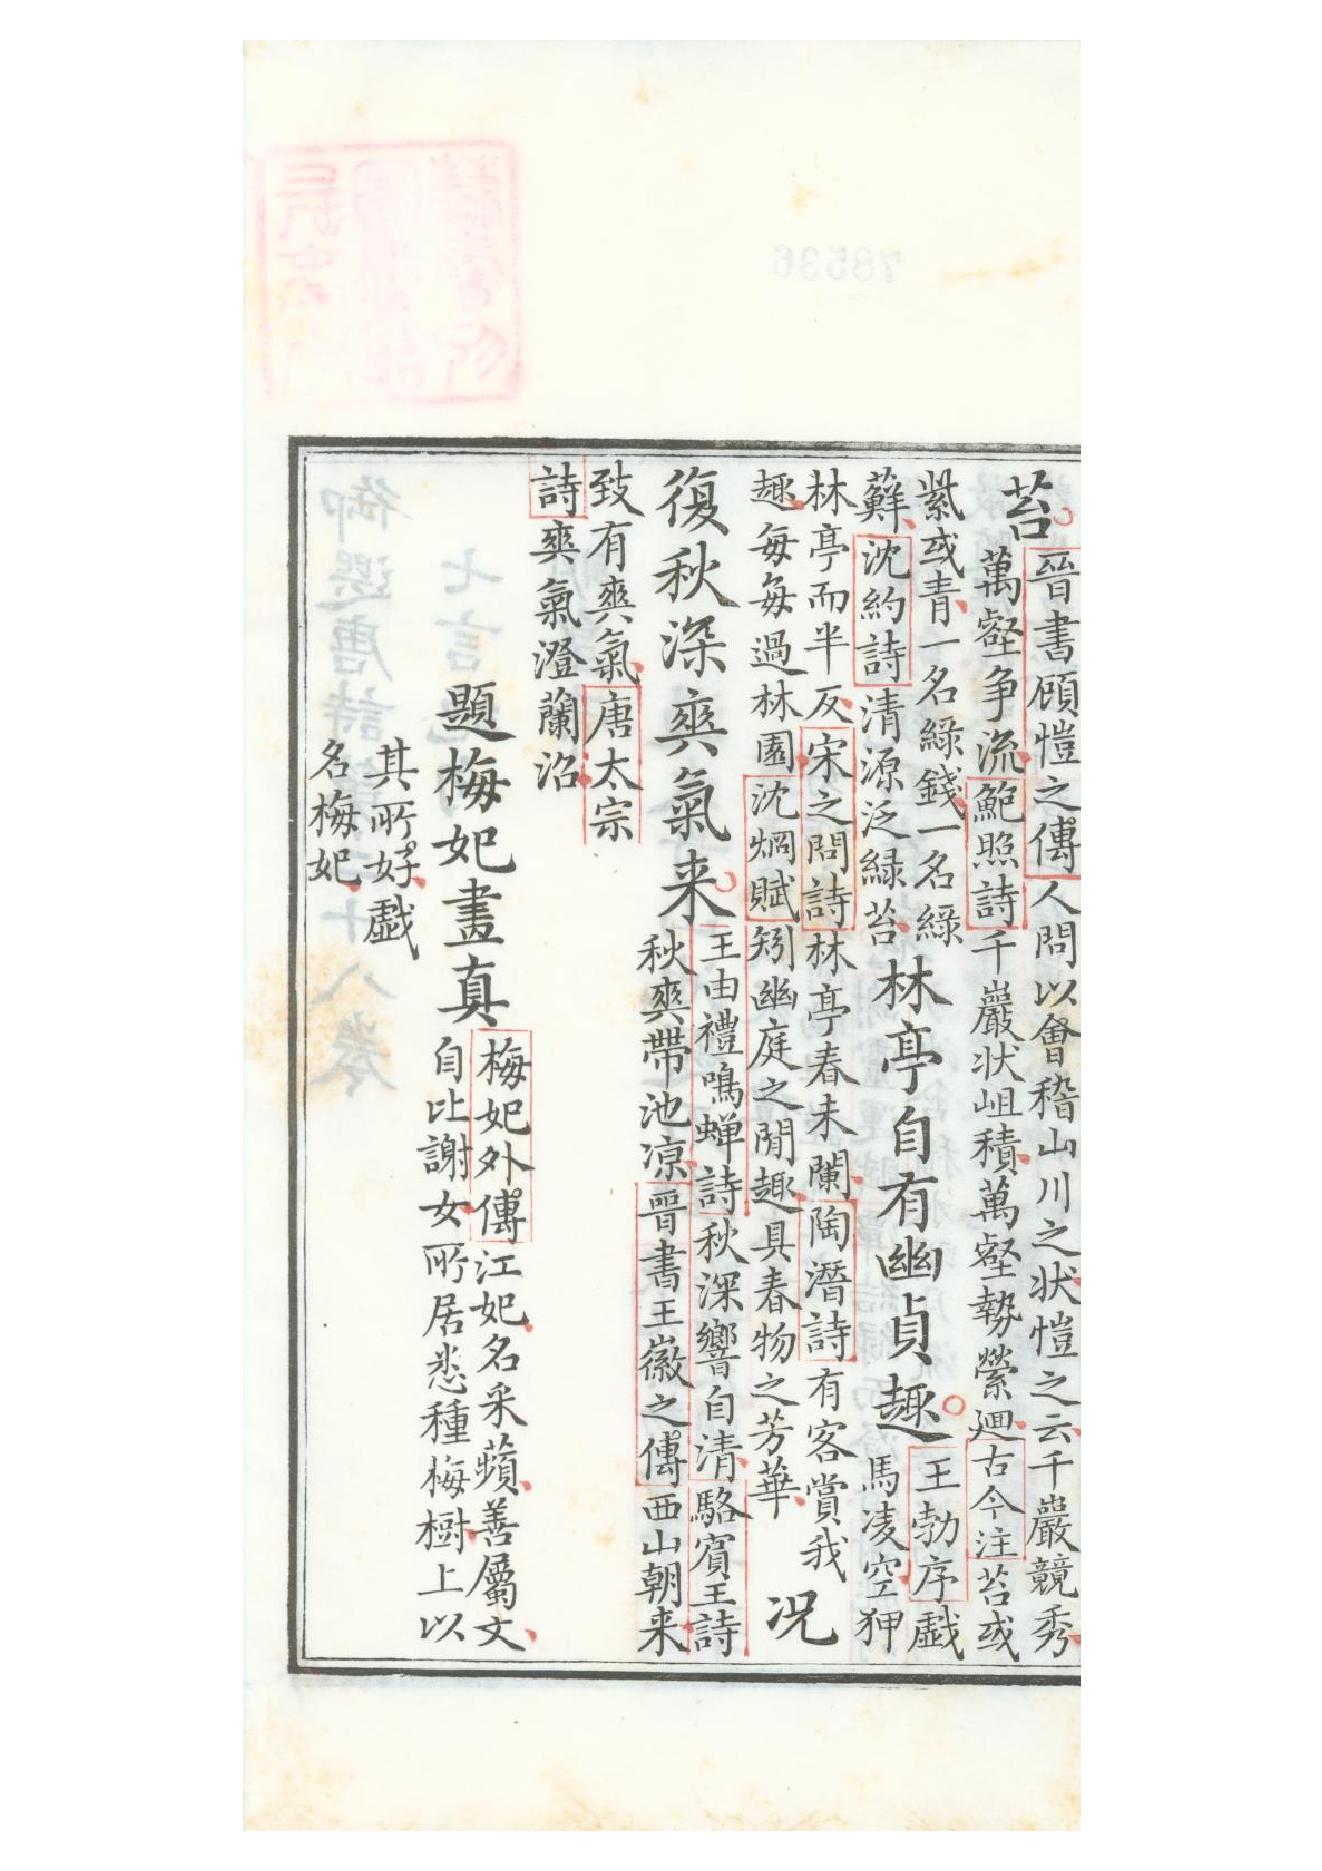 苔
晉書顧愷之傳人問以會稽山川之状愷之云千巖競秀
萬壑争流鮑照詩千巖状岨積萬壑勢縈廻古今注苔或
紫或青一名綠錢一名綠
蘚沈約詩清源泛緑苔
林亭自有幽貞趣
王勃序戱
馬凌空狎
林亭而半反宋之問詩林亭春未闌陶潛詩有客賞我
趣每每過林園沈炯賦矧幽庭之閒趣具春物之芳華
况
復秋深爽氣来
王由禮鳴蝉詩秋深響自清駱賓王詩
秋爽帶池凉晉書王徽之傳西山朝来
致有爽氣唐太宗
詩爽氣澄蘭沼
題梅妃畫真
梅妃外傳江妃名采蘋善屬文
自比謝女所居悉種梅樹上以
其所好戱
名梅妃